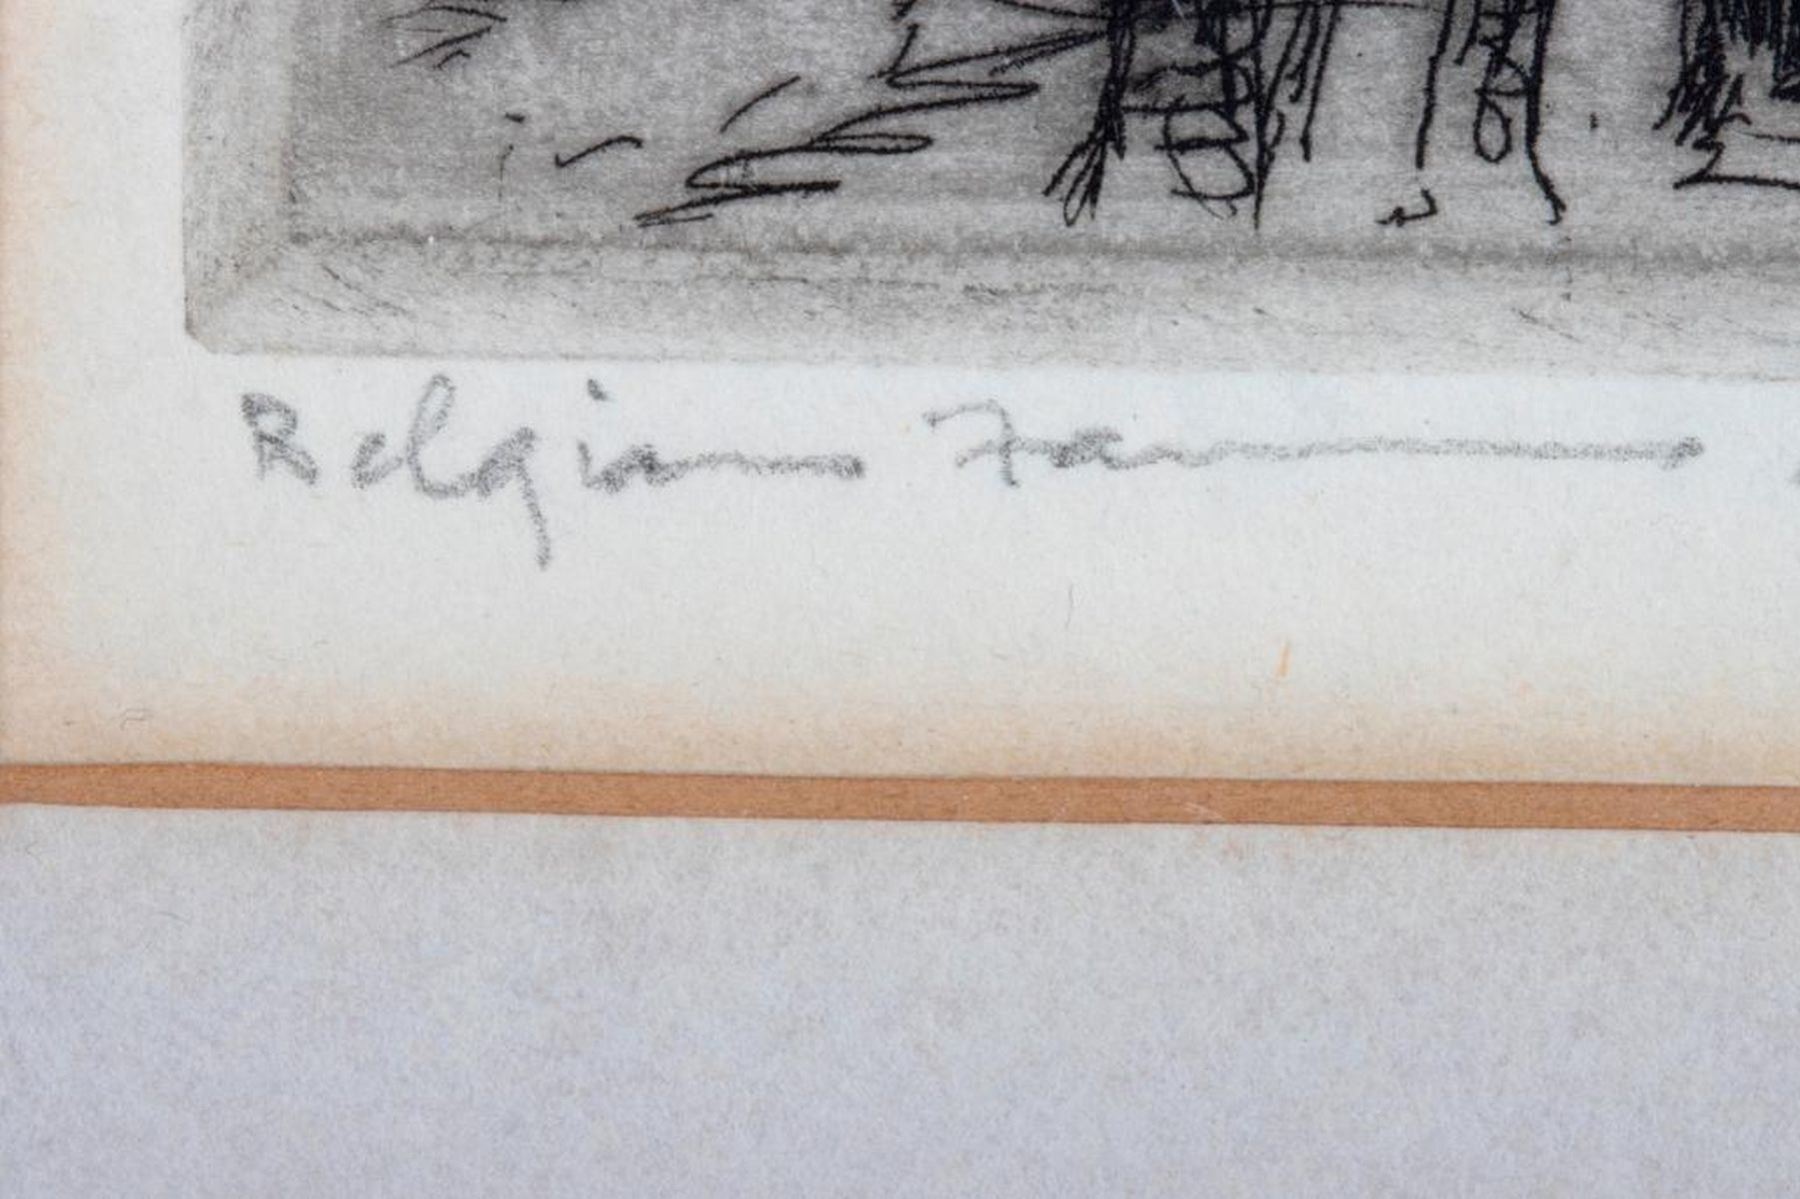 Belgian Farm